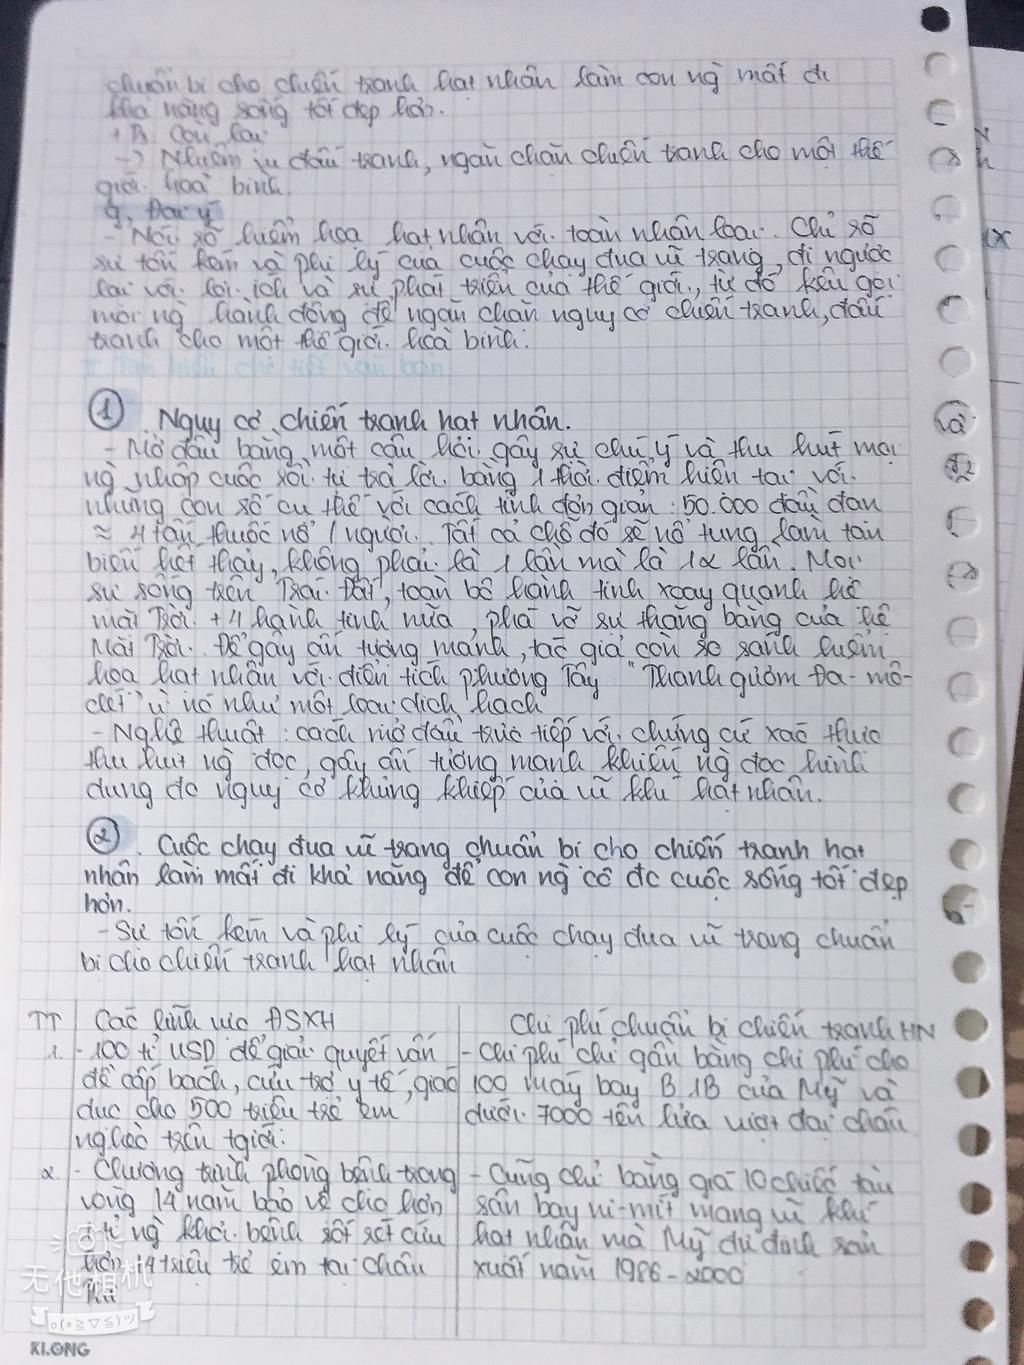 chuẩn bị cho chiến tranh hạt nhân làm con ng mất đi
khả năng sống tốt đẹp hơn.
+ P3. Còn lại
-> Nhiệm vụ đấu tranh, ngăn chặn chiến tranh cho một thế
giới hoà bình
g, Đại ý
- Nói số hiểm hoạ hạt nhân với toàn nhân loại. Chỉ số
sự tốn kém và phi lý của cuộc chạy đua vũ trang, đi ngược
lại với lợi ích và sự phát triển của thế giới, từ đó kêu gọi
mọi ng hành động để ngăn chặn nguy cơ chiến tranh, đấu
tranh cho một thế giới hoà bình.
Tìm hiểu chi tiết văn bản
① Nguy cơ chiến tranh hạt nhân.
- Mở đầu bằng một câu hỏi gây sự chú ý và thu hút mọi
ng nhập cuộc rồi tự trả lời bằng 1 thời điểm hiện tại với
những con số cụ thể với cách tính đơn giản : 50.000 đầu đạn
≈ 4 tấn thuốc nổ / người. Tất cả chỗ đó sẽ nổ tung làm tan
biến hết thảy, không phải là 1 lần mà là 12 lần. Mọi
sự sống trên Trái Đất, toàn bộ hành tinh xoay quanh hệ
mặt Trời + 4 hành tinh nữa, phá vỡ sự thăng bằng của hệ
Mặt Trời. Để gây ấn tượng mạnh, tác giả còn so sánh hiểm
hoạ hạt nhân với điển tích phương Tây "Thanh gươm Đa-mô-
clét" vì nó như một loại dịch hạch
- Nghệ thuật : cách mở đầu trực tiếp với chứng cứ xác thực
thu hút ng đọc, gây ấn tượng mạnh khiến ng đọc hình
dung đc nguy cơ khủng khiếp của vũ khí hạt nhân.
② . Cuộc chạy đua vũ trang chuẩn bị cho chiến tranh hạt
nhân làm mất đi khả năng để con ng có đc cuộc sống tốt đẹp
hơn.
- Sự tốn kém và phi lý của cuộc chạy đua vũ trang chuẩn
bị cho chiến tranh hạt nhân
TT Các lĩnh vực ĐSXH Chi phí chuẩn bị chiến tranh HN
1. - 100 tỉ USD để giải quyết vấn - Chi phí chỉ gần bằng chi phí cho
đề cấp bách, cứu trợ y tế, giáo 100 máy bay B.1B của Mỹ và
dục cho 500 triệu trẻ em dưới 7000 tên lửa vượt đại châu
nghèo trên tgiới.
2. - Chương trình phòng bệnh trong - Cũng chỉ bằng giá 10 chiếc tàu
vòng 14 năm bảo vệ cho hơn sân bay ni-mít mang vũ khí
1 tỉ ng khỏi bệnh sốt rét cứu hạt nhân mà Mỹ dự định sản
hơn 14 triệu trẻ em tại châu xuất năm 1986-2000
Phi
无他相机
o(*≧▽≦)ツ
KLONG